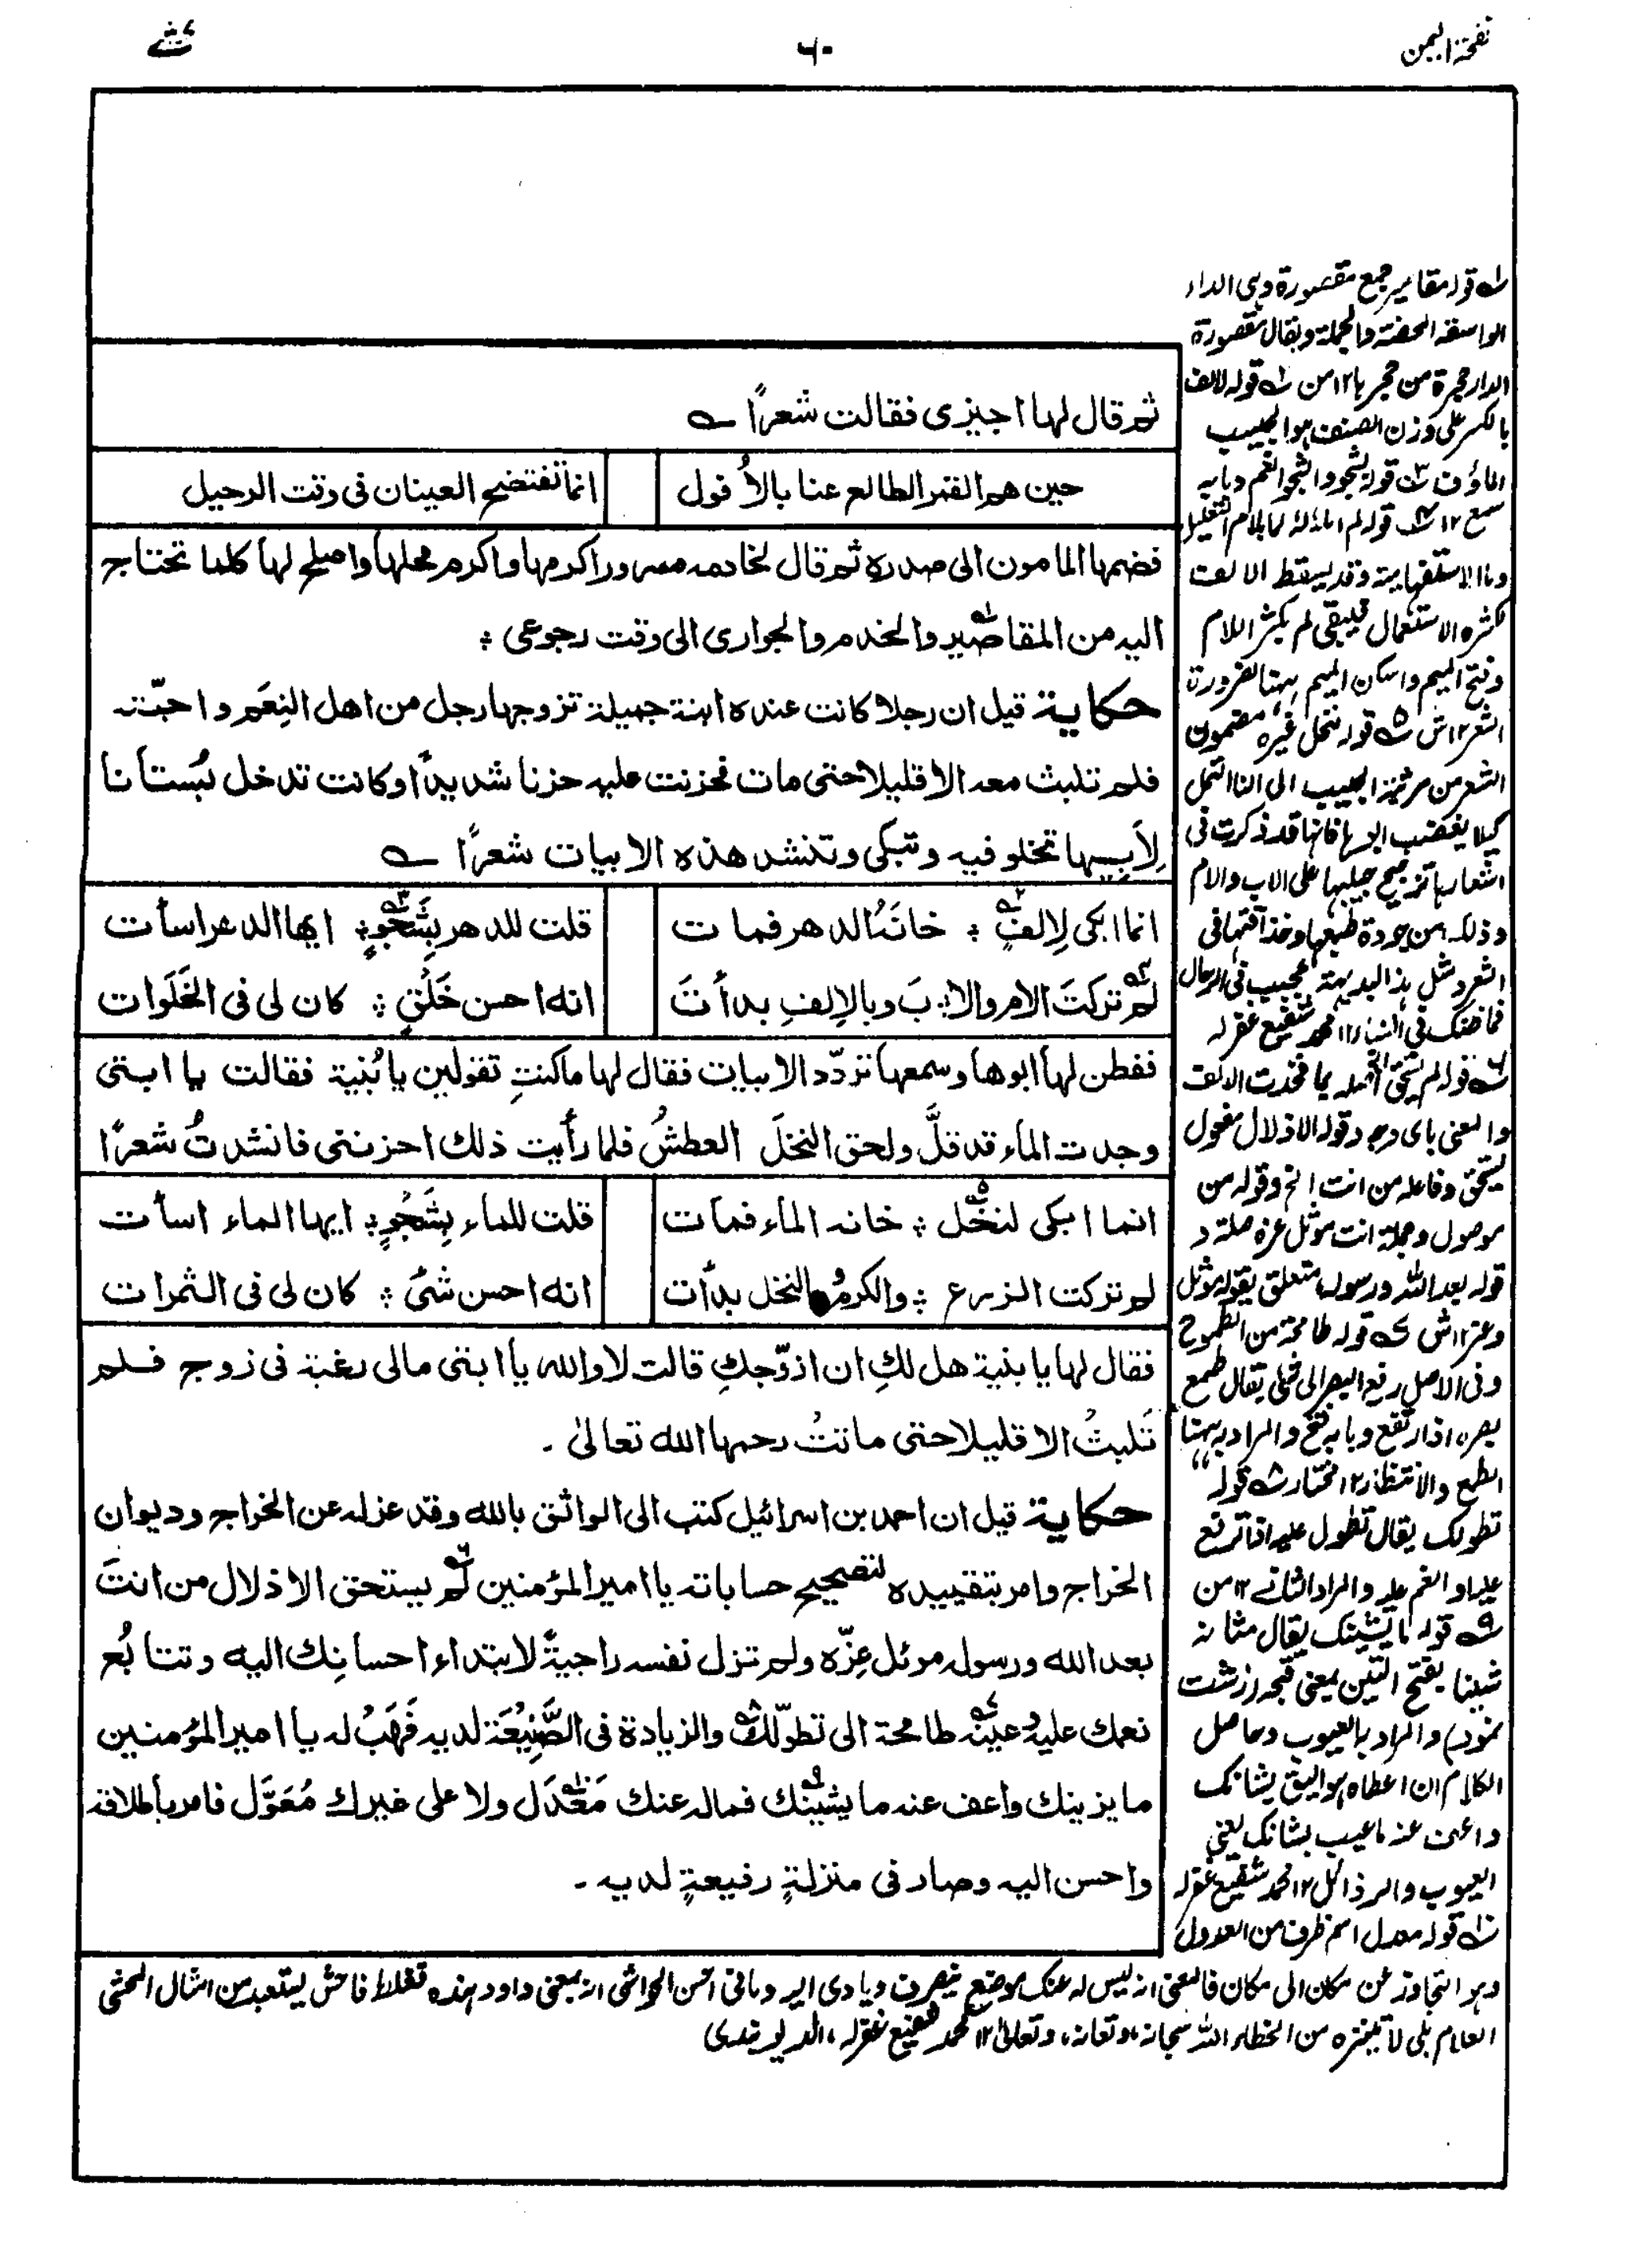 نفحة اليمن
٦٠
ثم قال لها اجيزى فقالت شعرًا
حين هم القمر الطالع عنا بالأُفول
انما تفتضح العينان فى وقت الرحيل
فضمها المامون الى صدره ثم قال لخادمه مسرور اكرمها واكرم محلها واصلح لها كلما تحتاج
اليه من المقاصير والخدم والجوارى الى وقت رجوعى ؛
حكاية قيل ان رجلا كانت عنده ابنة جميلة تزوجها رجل من اهل النِعَم واحبّته
فلم تلبث معه الا قليلا حتى مات فحزنت عليه حزنا شديدًا وكانت تدخل بُستانا
لِاَبيها تخلو فيه وتبكى وتنشد هذه الابيات شعرًا
انما ابكى لِالفٍ ؛ خانَهُ الدهر فمات
قلت للدهر بِشَجْوٍ ؛ ايها الدهر اسأت
لم تركتَ الام والا ؛ بَ وبالاِلفِ بدأتَ
انه احسن خَلْقٍ ؛ كان لى فى الخَلَوات
ففطن لها ابوها وسمعها تردّد الابيات فقال لها ماكنتِ تقولين يا بُنية فقالت يا ابتى
وجدت الماء قد قلَّ ولحق النخلَ العطشُ فلما رأيت ذلك احزننى فانشدتُ شعرًا
انما ابكى لنخل ؛ خانه الماء فمات
قلت للماء بِشَجْوٍ ؛ ايها الماء اسأت
لم تركت الزرع ؛ والكرمُ والنخل بدأت
انه احسن شئ ؛ كان لى فى الثمرات
فقال لها يا بنية هل لكِ ان ازوّجكِ قالت لا والله يا ابتى مالى رغبة فى زوج فلم
تَلبثْ الا قليلا حتى ماتتْ رحمها الله تعالىٰ ـ
حكاية قيل ان احمد بن اسرائيل كتب الى الواثق بالله وقد عزله عن الخراج وديوان
الخراج وامر بتقييده لتصحيح حساباته يا امير المؤمنين لم يستحق الاذلال من انتَ
بعد الله ورسوله موئل عِزّه ولم تزل نفسه راجيةً لابتداء احسانِك اليه وتتابُع
نعمك عليه وعينه طامحة الى تطوّلك والزيادة فى الصَّنِيْعَة لديه فَهَبْ له يا امير المؤمنين
ما يزينك واعف عنه ما يشينك فماله عنك مَعْدَل ولا على غيرك مُعَوَّل فامر باطلاقه
واحسن اليه وصار فى منزلةٍ رفيعةٍ لديه ـ
قوله مقاصير جمع مقصورة وهى الدار
الواسعة المحصنة والحجلة ويقال مقصورة
الدار حجرة من حجرها ١٢ من قوله لالف
بالكسر على وزن الصنف هو الحبيب
المألوف قوله بشجو والشجو الغم وبابه
سمع ١٢ قوله لم
وما الاستفهامية وقد يسقط الالف
لكثرة الاستعمال فيبقى لم بكسر اللام
وفتح الميم واسكن الميم ههنا لضرورة
الشعر ١٢ ش قوله نخل غيره مضمون
الشعر من مرثية الحبيب الى النخل
كيلا يغضب ابوها فانها قد ذكرت فى
اشعارها ترجيح حبيبها على الاب والام
وذلك من جودة طبعها وحذاقتها فى
الشعر ومثل هذا البديهة عجيب فى الرجال
فما ظنك فى النساء ١٢ محمد شفيع غفرله
قوله لم يستحق اصله بما فحذفت الالف
والمعنى باى وجه وقوله الاذلال مفعول
يستحق وفاعله من انت الخ وقوله من
موصول وجملة انت موئل عزه صلة و
قوله بعد الله ورسوله متعلق بقوله موئل
وعز ١٢ ش قوله طامحة من الطموح
وفى الاصل رفع البصر الى شئ يقال طمح
بصره اذا ارتفع وبابه فتح والمراد به ههنا
الطمع والانتظار ١٢ مختار قوله
تطولك يقال تطول عليه اذا ترفع
عليه او انعم عليه والمراد الثانى ١٢ من
قوله ما يشينك يقال شانه
شينا بفتح الشين بمعنى قبحه (زشت
نمود) والمراد بالعيوب وحاصل
الكلام ان اعطاه هو اليق بشانك
واعف عنه ما عيب بشانك يعنى
العيوب والرذائل ١٢ محمد شفيع غفرله
قوله معدل اسم ظرف من العدول
وهو التجاوز عن مكان الى مكان فالمعنى انه ليس له عنك موضع ينصرف وياوى اليه وما فى احسن الحواشى انه بمعنى داود فهذه غلط فاحش يستبعد من امثال المحشى
العلام بلى لا يتنزه من الخطاء الله سبحانه وتعالىٰ ١٢ محمد شفيع غفرله، الديوبندى